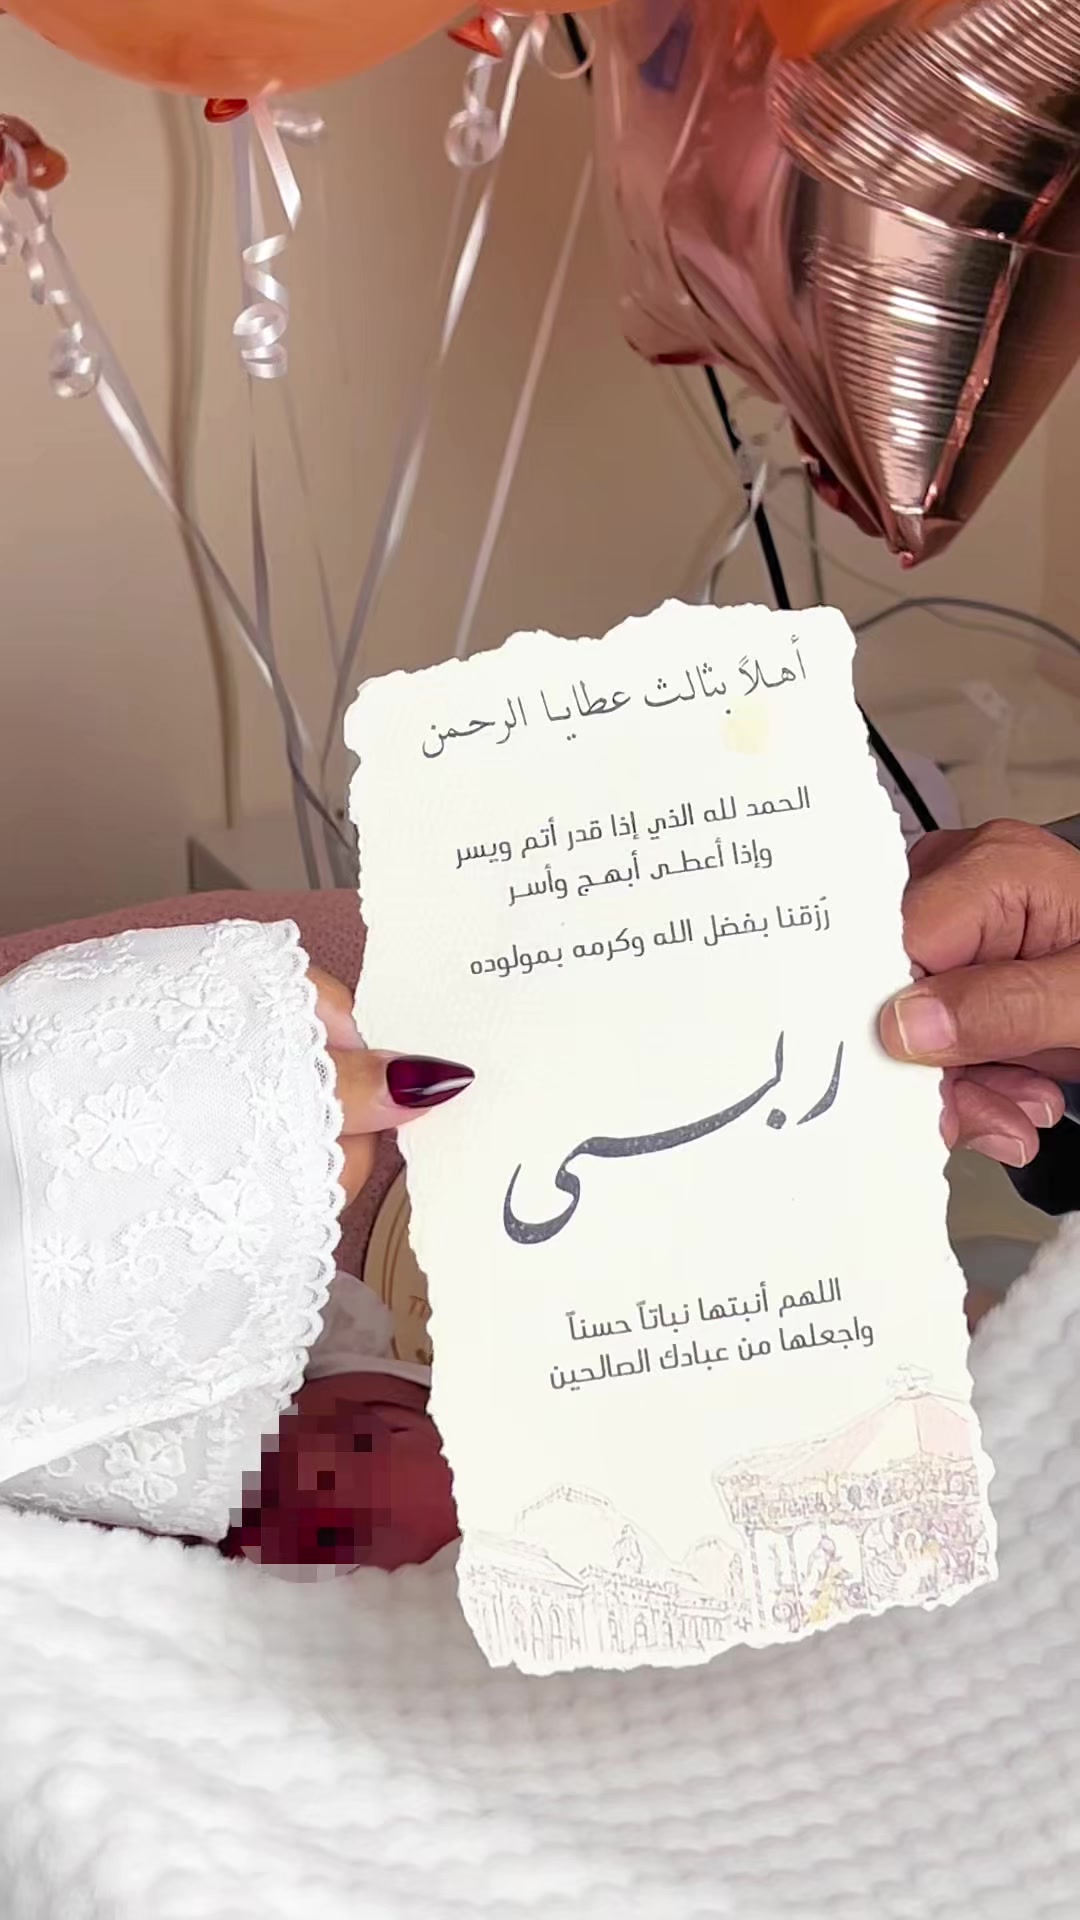 أهلاً بثالث عطايا الرحمن
الحمد لله الذي إذا قدر أتم ويسر
وإذا أعطى أبهج وأسر
رُزقنا بفضل الله وكرمه بمولوده
اللهم أنبتها نباتاً حسناً
واجعلها من عبادك الصالحين